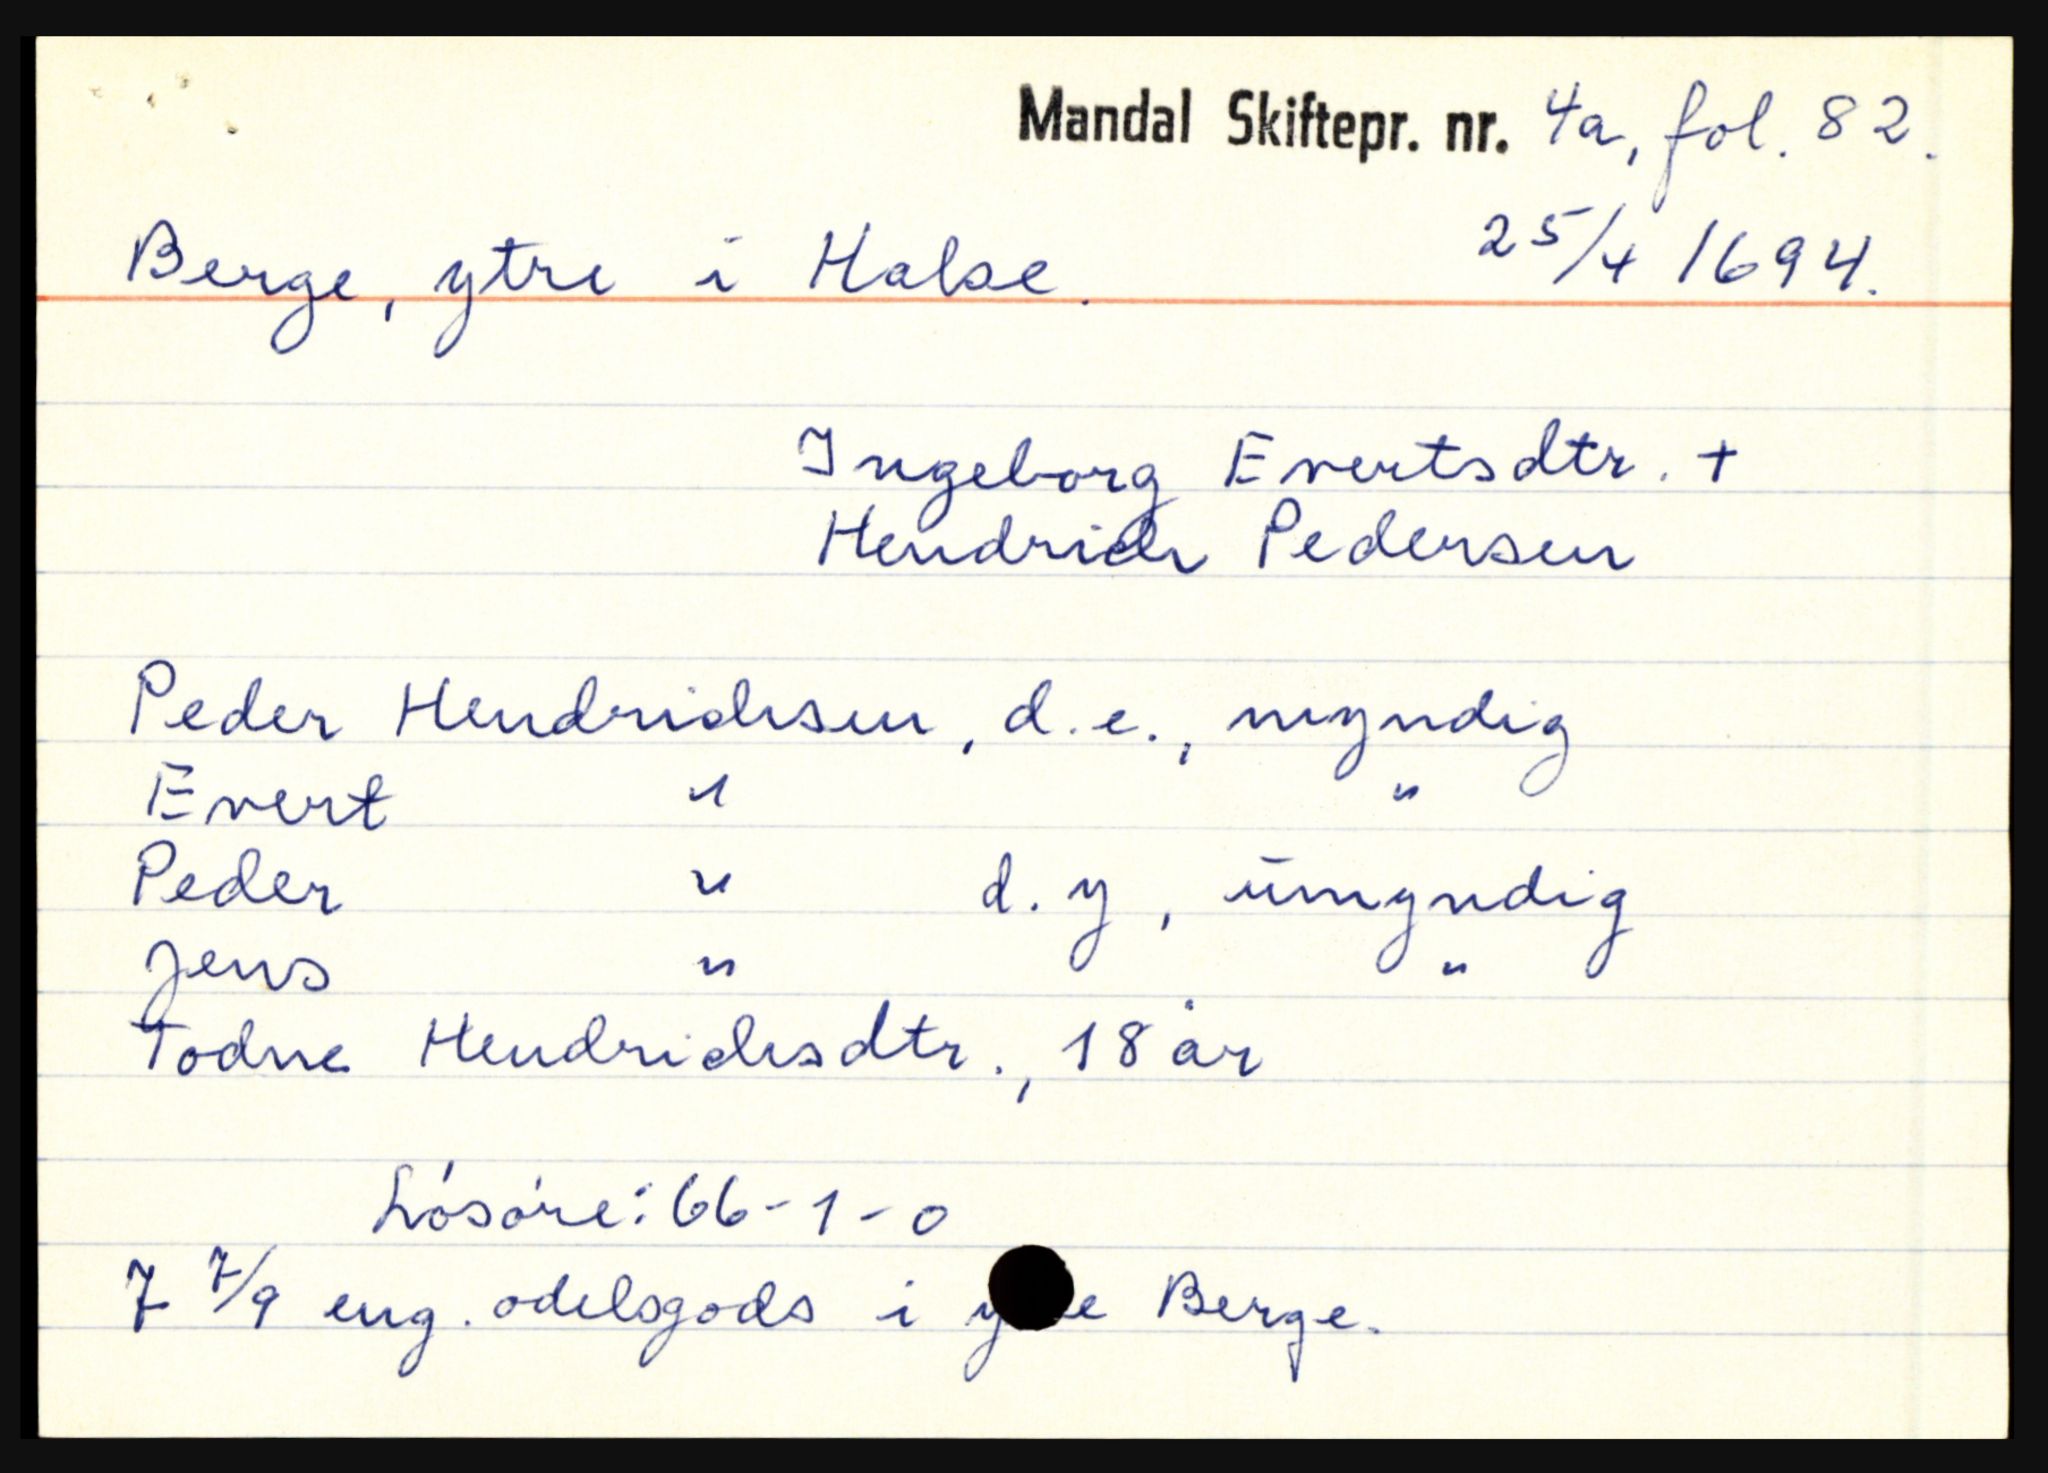 Mandal Skiftepr. nr. 4a, fol. 82.
Berge, ytre i Halse. 25/4 1694.
Ingeborg Evertsdtr. +
Hendrich Pedersen
Peder Hendrichsen, d.e., myndig
Evert " "
Peder " d.y, umyndig
Jens " "
Todne Hendrichsdtr., 18 år
Lósóre: 66-1-0
7 7/9 eng. odelsgods i Berge.